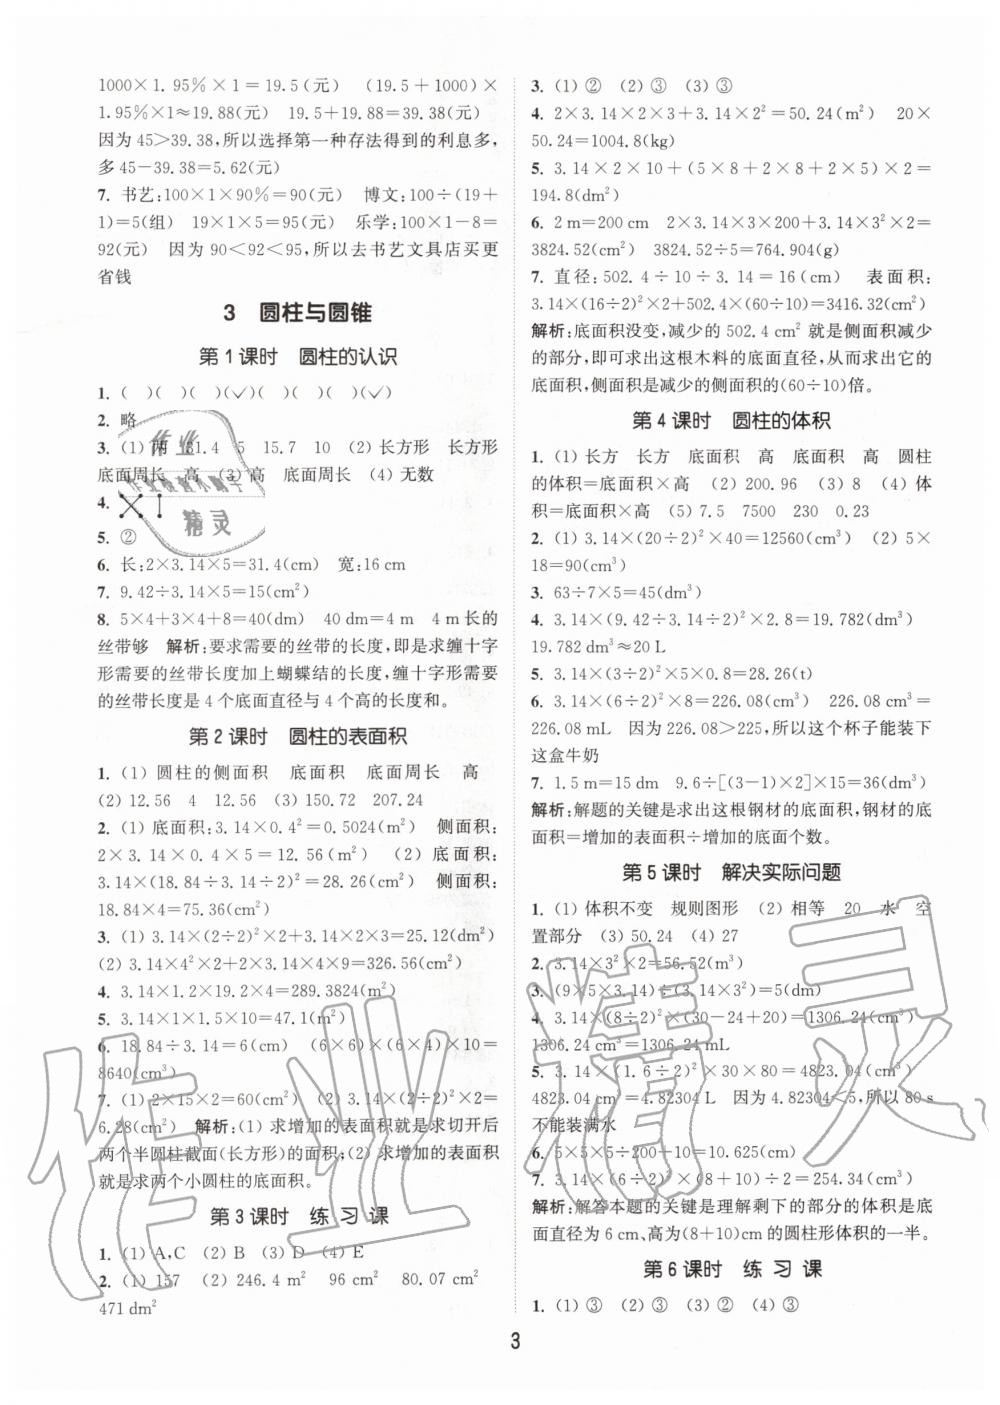 1000×1.95%×1=19.5(元) (19.5+1000)×
1.95%×1≈19.88(元) 19.5+19.88=39.38(元)
因为45>39.38,所以选择第一种存法得到的利息多,
多45-39.38=5.62(元)
7. 书艺:100×1×90%=90(元) 博文:100÷(19+
1)=5(组) 19×1×5=95(元) 乐学:100×1-8=
92(元) 因为90<92<95,所以去书艺文具店买更
省钱
3 圆柱与圆锥
第1课时 圆柱的认识
1. ( )( )( )(✓)( )( )(✓)
2. 略
3. (1) 两 31.4 5 15.7 10 (2) 长方形 长方形
底面周长 高 (3) 高 底面周长 (4) 无数
4.
5. ②
6. 长:2×3.14×5=31.4(cm) 宽:16 cm
7. 9.42÷3.14×5=15(cm²)
8. 5×4+3×4+8=40(dm) 40 dm=4 m 4 m长的
丝带够 解析:要求需要的丝带的长度,即是求缠十字
形需要的丝带长度加上蝴蝶结的长度,缠十字形需要
的丝带长度是4个底面直径与4个高的长度和。
第2课时 圆柱的表面积
1. (1) 圆柱的侧面积 底面积 底面周长 高
(2) 12.56 4 12.56 (3) 150.72 207.24
2. (1) 底面积:3.14×0.4²=0.5024(m²) 侧面积:
2×3.14×0.4×5=12.56(m²) (2) 底面积:
3.14×(18.84÷3.14÷2)²=28.26(cm²) 侧面积:
18.84×4=75.36(cm²)
3. (1) 3.14×(2÷2)²×2+3.14×2×3=25.12(dm²)
(2) 3.14×4²×2+2×3.14×4×9=326.56(cm²)
4. 3.14×1.2×19.2×4=289.3824(m²)
5. 3.14×1×1.5×10=47.1(m²)
6. 18.84÷3.14=6(cm) (6×6)×(6×4)×10=
8640(cm³)
7. (1) 2×15×2=60(cm²) (2) 3.14×(2÷2)²×2=
6.28(cm²) 解析:(1) 求增加的表面积就是求切开后
两个半圆柱截面(长方形)的面积;(2) 求增加的表面积
就是求两个小圆柱的底面积。
第3课时 练习课
1. (1) A,C (2) B (3) D (4) E
2. (1) 157 (2) 246.4 m² 96 cm² 80.07 cm²
471 dm²
3. (1) ② (2) ③ (3) ③
4. 2×3.14×2×3+3.14×2²=50.24(m²) 20×
50.24=1004.8(kg)
5. 3.14×2×10+(5×8+2×8+2×5)×2=
194.8(dm²)
6. 2 m=200 cm 2×3.14×3×200+3.14×3²×2=
3824.52(cm²) 3824.52÷5=764.904(g)
7. 直径:502.4÷10÷3.14=16(cm) 表面积:
3.14×(16÷2)²×2+502.4×(60÷10)=3416.32(cm²)
解析:底面积没变,减少的502.4 cm²就是侧面积减少
的部分,即可求出这根木料的底面直径,从而求出它的
底面积,侧面积是减少的侧面积的(60÷10)倍。
第4课时 圆柱的体积
1. (1) 长方 长方 底面积 高 底面积 高 圆柱
的体积=底面积×高 (2) 200.96 (3) 8 (4) 体
积=底面积×高 (5) 7.5 7500 230 0.23
2. (1) 3.14×(20÷2)²×40=12560(cm³) (2) 5×
18=90(cm³)
3. 63÷7×5=45(cm³)
4. 3.14×(9.42÷3.14÷2)²×2.8=19.782(dm³)
19.782 dm³≈20 L
5. 3.14×(3÷2)²×5×0.8=28.26(t)
6. 3.14×(6÷2)²×8=226.08(cm³) 226.08 cm³=
226.08 mL 因为226.08>225,所以这个杯子能装下
这盒牛奶
7. 1.5 m=15 dm 9.6÷[(3-1)×2]×15=36(dm³)
解析:解题的关键是求出这根钢材的底面积,钢材的底
面积=增加的表面积÷增加的底面个数。
第5课时 解决实际问题
1. (1) 体积不变 规则图形 (2) 相等 20 水 空
置部分 (3) 50.24 (4) 27
2. 3.14×3²×2=56.52(m³)
3. (9×5×3.14)÷(3.14×3²)=5(dm)
4. 3.14×(8÷2)²×(30-24+20)=1306.24(cm³)
1306.24 cm³=1306.24 mL
5. 3.14×(1.6÷2)²×30×80=4823.04(cm³)
4823.04 cm³=4.82304 L 因为4.82304<5,所以80 s
不能装满水
6. 5×5×5÷200+10=10.625(cm)
7. 3.14×(6÷2)²×(8+10)÷2=254.34(cm³)
解析:解答本题的关键是理解剩下的部分的体积是底
面直径为6 cm,高为(8+10)cm的圆柱形体积的一半。
第6课时 练习课
1. (1) ③ (2) ③ (3) ② (4) ③
3
作业精灵
作业
精灵